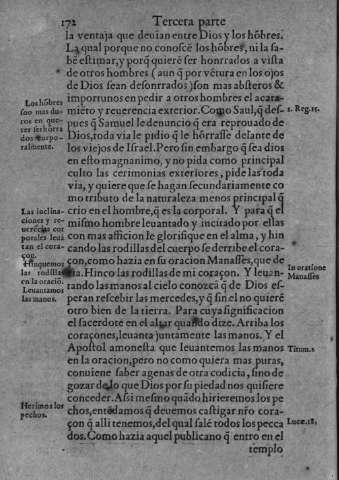 172 Tercera parte
la ventaja que deuian entre Dios y los hõbres.
La qual porque no conoscẽ los hõbres, ni la sa-
bẽ estimar, y porq̃ quierẽ ser honrrados a vista
de otros hombres (aun q̃ por vẽtura en los ojos
de Dios sean desonrrados) son mas absteros &
importunos en pedir a otros hombres el acata-
miẽto y reuerencia exterior. Como Saul, q̃ des-
pues q̃ Samuel le denunciò q̃ era reprouado de
Dios, toda via le pidio q̃ le hõrrasse delante de
los viejos de Israel. Pero sin embargo q̃ sea dios
en esto magnanimo, y no pida como principal
culto las cerimonias exteriores, pide las toda
via, y quiere que se hagan secundariamente co
mo tributo de la naturaleza menos principal q̃
crio en el hombre, q̃ es la corporal. Y para q̃ el
mismo hombre leuantado y incitado por ellas
con mas afficion le glorifique en el alma, y hin
cando las rodillas del cuerpo se derribe el cora-
çon, como hazia en su oracion Manasses, que de
zia. Hinco las rodillas de mi coraçon. Y leuan-
tando las manos al cielo conozcã q̃ de Dios es-
peran rescebir las mercedes, y q̃ sin el no quierẽ
otro bien de la tierra. Para cuya significacion
el sacerdote en el altar quando dize. Arriba los
coraçones, leuanta juntamente las manos. Y el
Apostol amonesta que leuantemos las manos
en la oracion, pero no como quiera mas puras,
conuiene saber agenas de otra codicia, sino de
gozar de lo que Dios por su piedad nos quisiere
conceder. Assi mesmo quãdo hirieremos los pe
chos, entẽdamos q̃ deuemos castigar nr̃o cora-
çon q̃ alli tenemos, del qual salẽ todos los pecca
dos. Como hazia aquel publicano q̃ entro en el
templo
Los hõbres
son mas du-
ros en que-
rer ser hõrra
dos corpo-
ralmente.
Las inclina-
ciones y re-
uerẽcias cor
porales leuã
tan el cora-
çon.
Hinquemos
las rodillas
en la oraciõ.
Leuantamos
las manos.
Herimos los
pechos.
1. Reg. 15.
In oratione
Manasses
Timm. 2
Luce. 18.